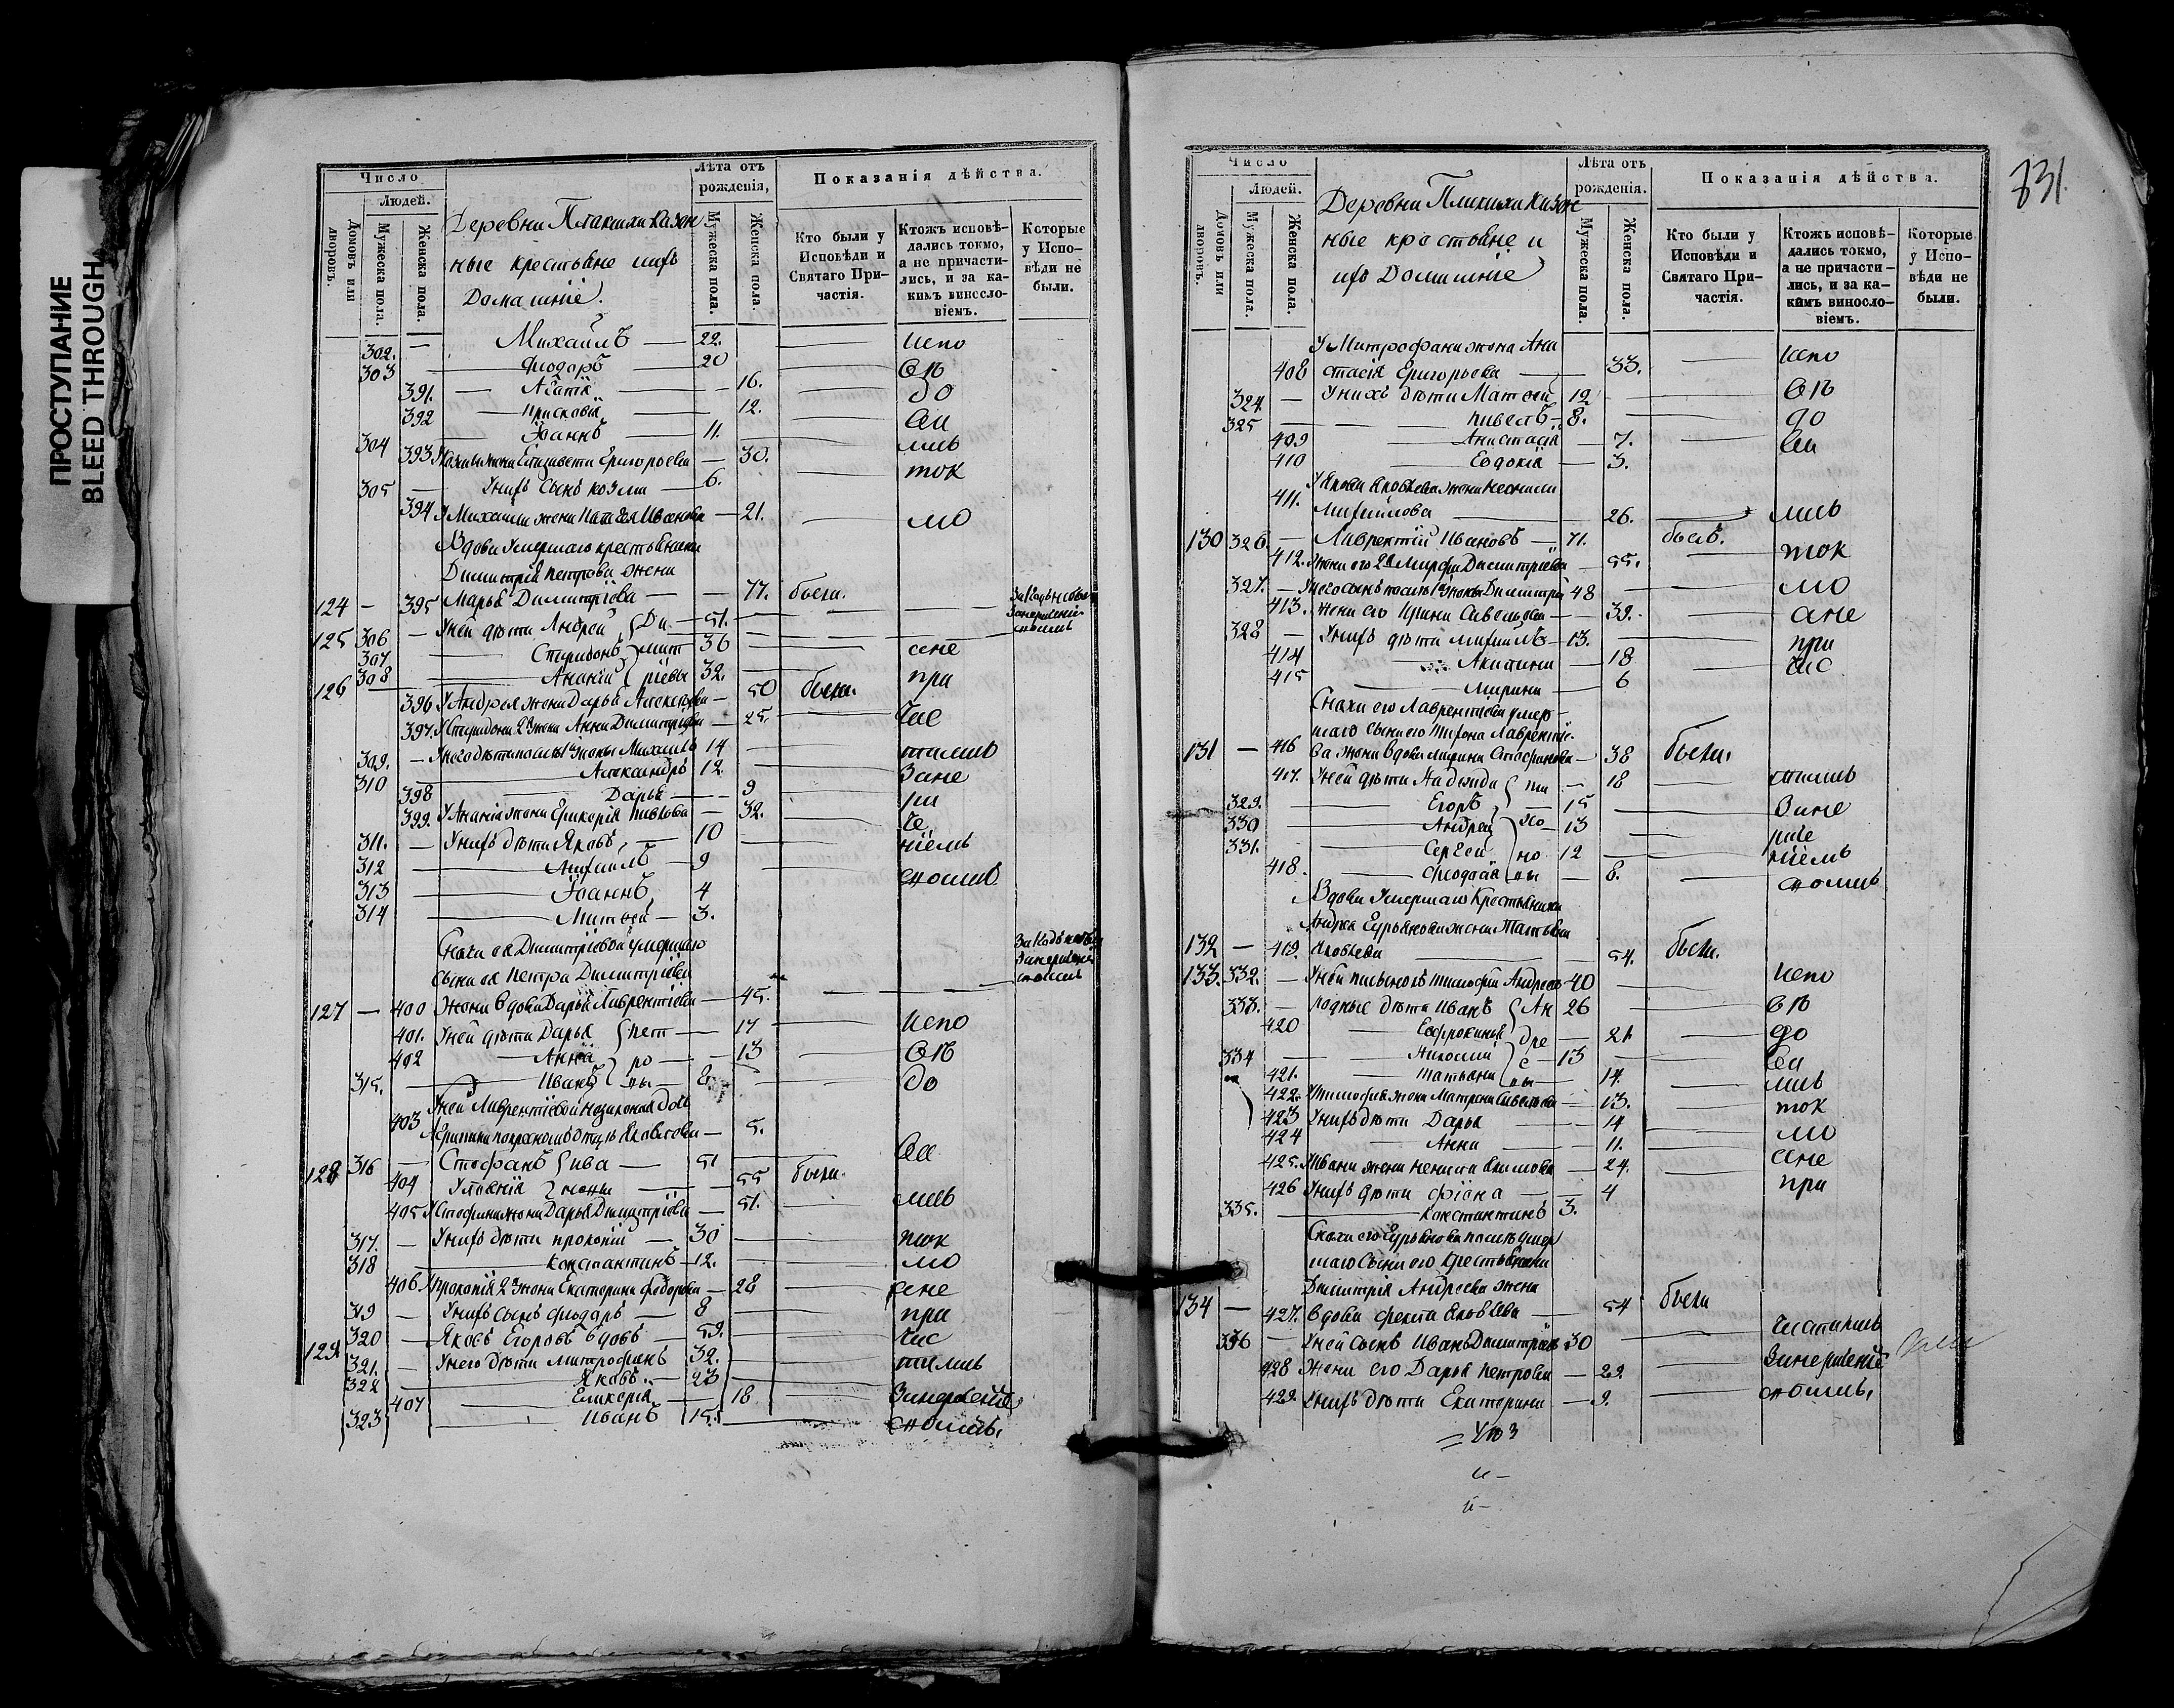 ПРОСТУПАНИЕ
BLEED THROUGH
Число
Людей.
Домовъ или дворовъ.
Мужеска пола.
Женска пола.
Деревни Плакихи казен
ные крестьяне ихъ
Домашніе.
Лѣта отъ рожденія,
Мужеска пола.
Женска пола.
Показанія дѣйства.
Кто были у Исповѣди и Святаго Причастія.
Ктожъ исповѣдались токмо, а не причастились, и за какимъ винословіемъ.
Которые у Исповѣди не были.
302. — Михаилъ — 22. — испо
303 — Ѳиодоръ — 20 — вѣ
391. — Агаѳія — 16. — до
392 — Прасковія — 12. — ва
304 — Іоаннъ — 11. — лись
393 Козьмы жена Елизавета Григорьева — 30. — ток
305 — У нихъ сынъ Козма — 6.
394 У Михаила жена Наталья Иванова — 21. — мо
Вдова умершаго крестьянина
Димитрія Петрова жена
124 — 395 Марья Димитріева — 77. была.
125 306 — У ней дѣти Андрей Ди — 51.
307 — Спиридонъ мит — 36 — а не
308 — Ананій ріевы 32. — при
126 396 У Андрея жена Дарья Алексѣева — 50 была.
397. У Спиридона 2я жена Анна Димитріева — 25. — час
309. — У него дѣти после 1й жены Михаилъ 14 — тились
310 — Александръ 12 — За не
398 — Дарья — 9 — ра
399. У Ананія жена Гликерія Павлова — 32. — че
311. — У нихъ дѣти Яковъ, — 10 — ніемъ
312 — Михаилъ — 9
313 — Іоаннъ, 4
314 — Матвей, — 3.
Снохи ея Димитріевой умершаго
сына ея Петра Димитріева
127 — 400 Жена вдова Дарья Лаврентіева — 45.
401. У ней дѣти Дарья пет — 17 — испо
402 — Анна ро — 13 — вѣ
315. — Иванъ вы — 8. — до
У ней Лаврентіевой незаконная дочь
403 — 5.
128 316 — Стефанъ Ива — 51 — ва
404 Улѣянія новы — 55 была.
405 У Стефана жена Дарья Димитріева — 51. — лись
317. — У нихъ дѣти Прокопій — 30 — ток
318 — Константинъ — 12. — мо
406 У Прокопія 2я жена Екатерина Федорова — 28 — а не
319 — У нихъ сынъ Ѳиодоръ — 8 — при
129 320 — Яковъ Егоровъ вдовъ — 59. — час
321. — У него дѣти Митрофанъ 32. — тились
322 — Яковъ. — 23
407 — Гликерія — 18
323 — Иванъ 15.
331.
Число
Людей.
Домовъ или дворовъ.
Мужеска пола.
Женска пола.
Деревни Плакихи казен
ные крестьяне и
ихъ Домашніе
Лѣта отъ рожденія.
Мужеска пола.
Женска пола.
Показанія дѣйства.
Кто были у Исповѣди и Святаго Причастія.
Ктожъ исповѣдались токмо, а не причастились, и за какимъ винословіемъ.
Которые у Исповѣди не были.
У Митрофана жена Ана
408 стасія Григорьева — 33. — испо
324 — У нихъ дѣти Матвей 12 — вѣ
325 — Павелъ — 8. — до
409 — Анастасія — 7. — ва
410 — Евдокія — 3.
411. 26. — лись
130 326. — Лаврентій Ивановъ — 71. былъ.
412. Жена его 2я Марфа Димитріева — 55. — ток
327. — У него сынъ после 1й жены Димитрій 48 — мо
413. Жена его Ирина Савельева — 39. — а не
328 — У нихъ дѣти Михаилъ — 13. — при
414 — Акилина — 18 — час
415 — Марина — 6
Снохи его Лаврентіева умер
шаго сына его Тихона Лаврентіе
131 — 416 ва жена вдова Марина Стефанова — 38 была.
417. У ней дѣти Надежда ти — 18 — тились
329. — Егоръ — 15 — За не
330 — Андрей хо — 13
331. — Сергей но 12 — ніемъ
418. вы — 8.
Вдова умершаго крестьянина
Андрея Гурьянова жена Татьяна
132 — 419. Яковлева — 54. была.
133. 332. — У ней пасынокъ Тимофей Андреевъ 40 — испо
333. — родные дѣти Иванъ Ан 26 — вѣ
420 — Евфросинья дре — 21 — до
334 — Николай е — 13 — ва
421. — Татьяна вы — 14. — лись
422. У Тимофея жена Матрена Савельева — 13. — ток
423 У нихъ дѣти Дарья — 14 — мо
424 — Анна — 11. — а не
425. У Ивана жена — 24. — при
426 У нихъ дѣти — 4
335. — Константинъ 3.
Снохи его Гурьянова после умер
шаго сына его крестьянина
Димитрія Андреева жена
134 — 427. вдова Фекла Яковлева — 54 была
336 — У ней сынъ Иванъ Димитріевъ 30 — частились
428 Жена его Дарья Петрова — 29.
429. У нихъ дѣти Екатерина — 9.